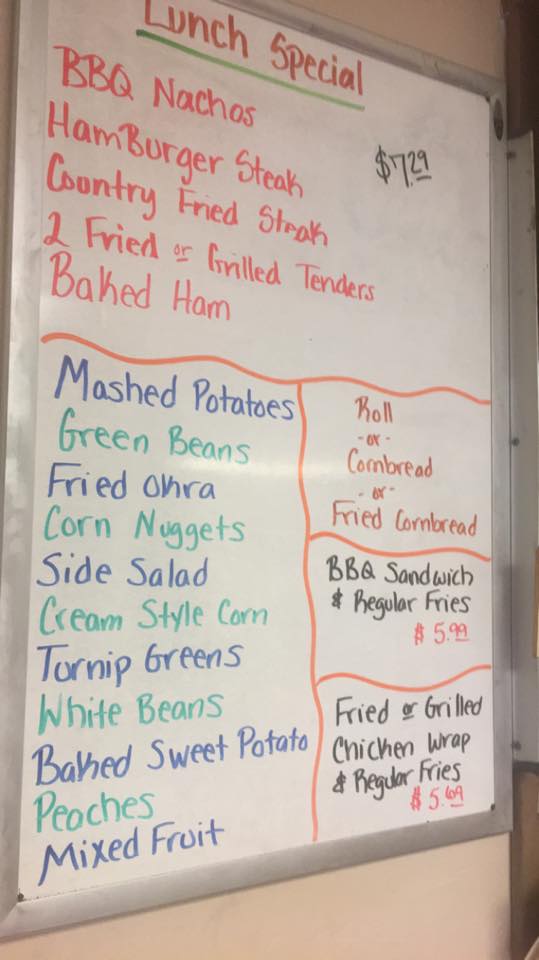 Lunch Special
BBQ Nachos
HamBurger Steak
$7.29
Country Fried Steak
2 Fried or Grilled Tenders
Baked Ham
Mashed Potatoes
Green Beans
Fried Okra
Corn Nuggets
Side Salad
Cream Style Corn
Turnip Greens
White Beans
Baked Sweet Potato
Peaches
Mixed Fruit
Roll
- or -
Cornbread
- or -
Fried Cornbread
BBQ Sandwich
& Regular Fries
$ 5.99
Fried or Grilled
Chicken Wrap
& Regular Fries
$ 5.69